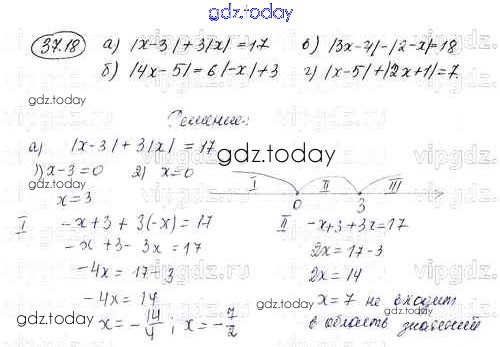 gdz.today
37.18 а) |x-3|+3|x|=17 в) |3x-4|-|2-x|=18
б) |4x-5|=6|-x|+3 г) |x-5|+|2x+1|=7.
gdz.today
Решение:
а) |x-3|+3|x|=17
gdz.today
1) x-3=0 2) x=0
x=3
I II III
0 3
I -x+3+3(-x)=17
-x+3-3x=17
-4x=17-3
-4x=14
x=-14/4; x=-7/2
II -x+3+3x=17
2x=17-3
2x=14
x=7 не входит
в область значений
gdz.today
gdz.today
gdz.today